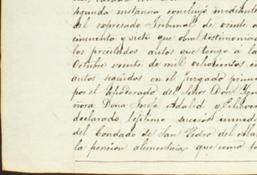 segunda instancia concluyó mediante
del expresado Tribunal de veinte
cincuenta y siete que obra testimoniado
los precitados autos que tengo a la
Octubre veinte de mil ochocientos
autos seguidos en el Juzgado prime
por el Apoderado del Señor Don
ñora Doña Josefa Adalid y
declarado legítimo sucesor inmed
del Condado de San Pedro del
la pension alimenticia que como